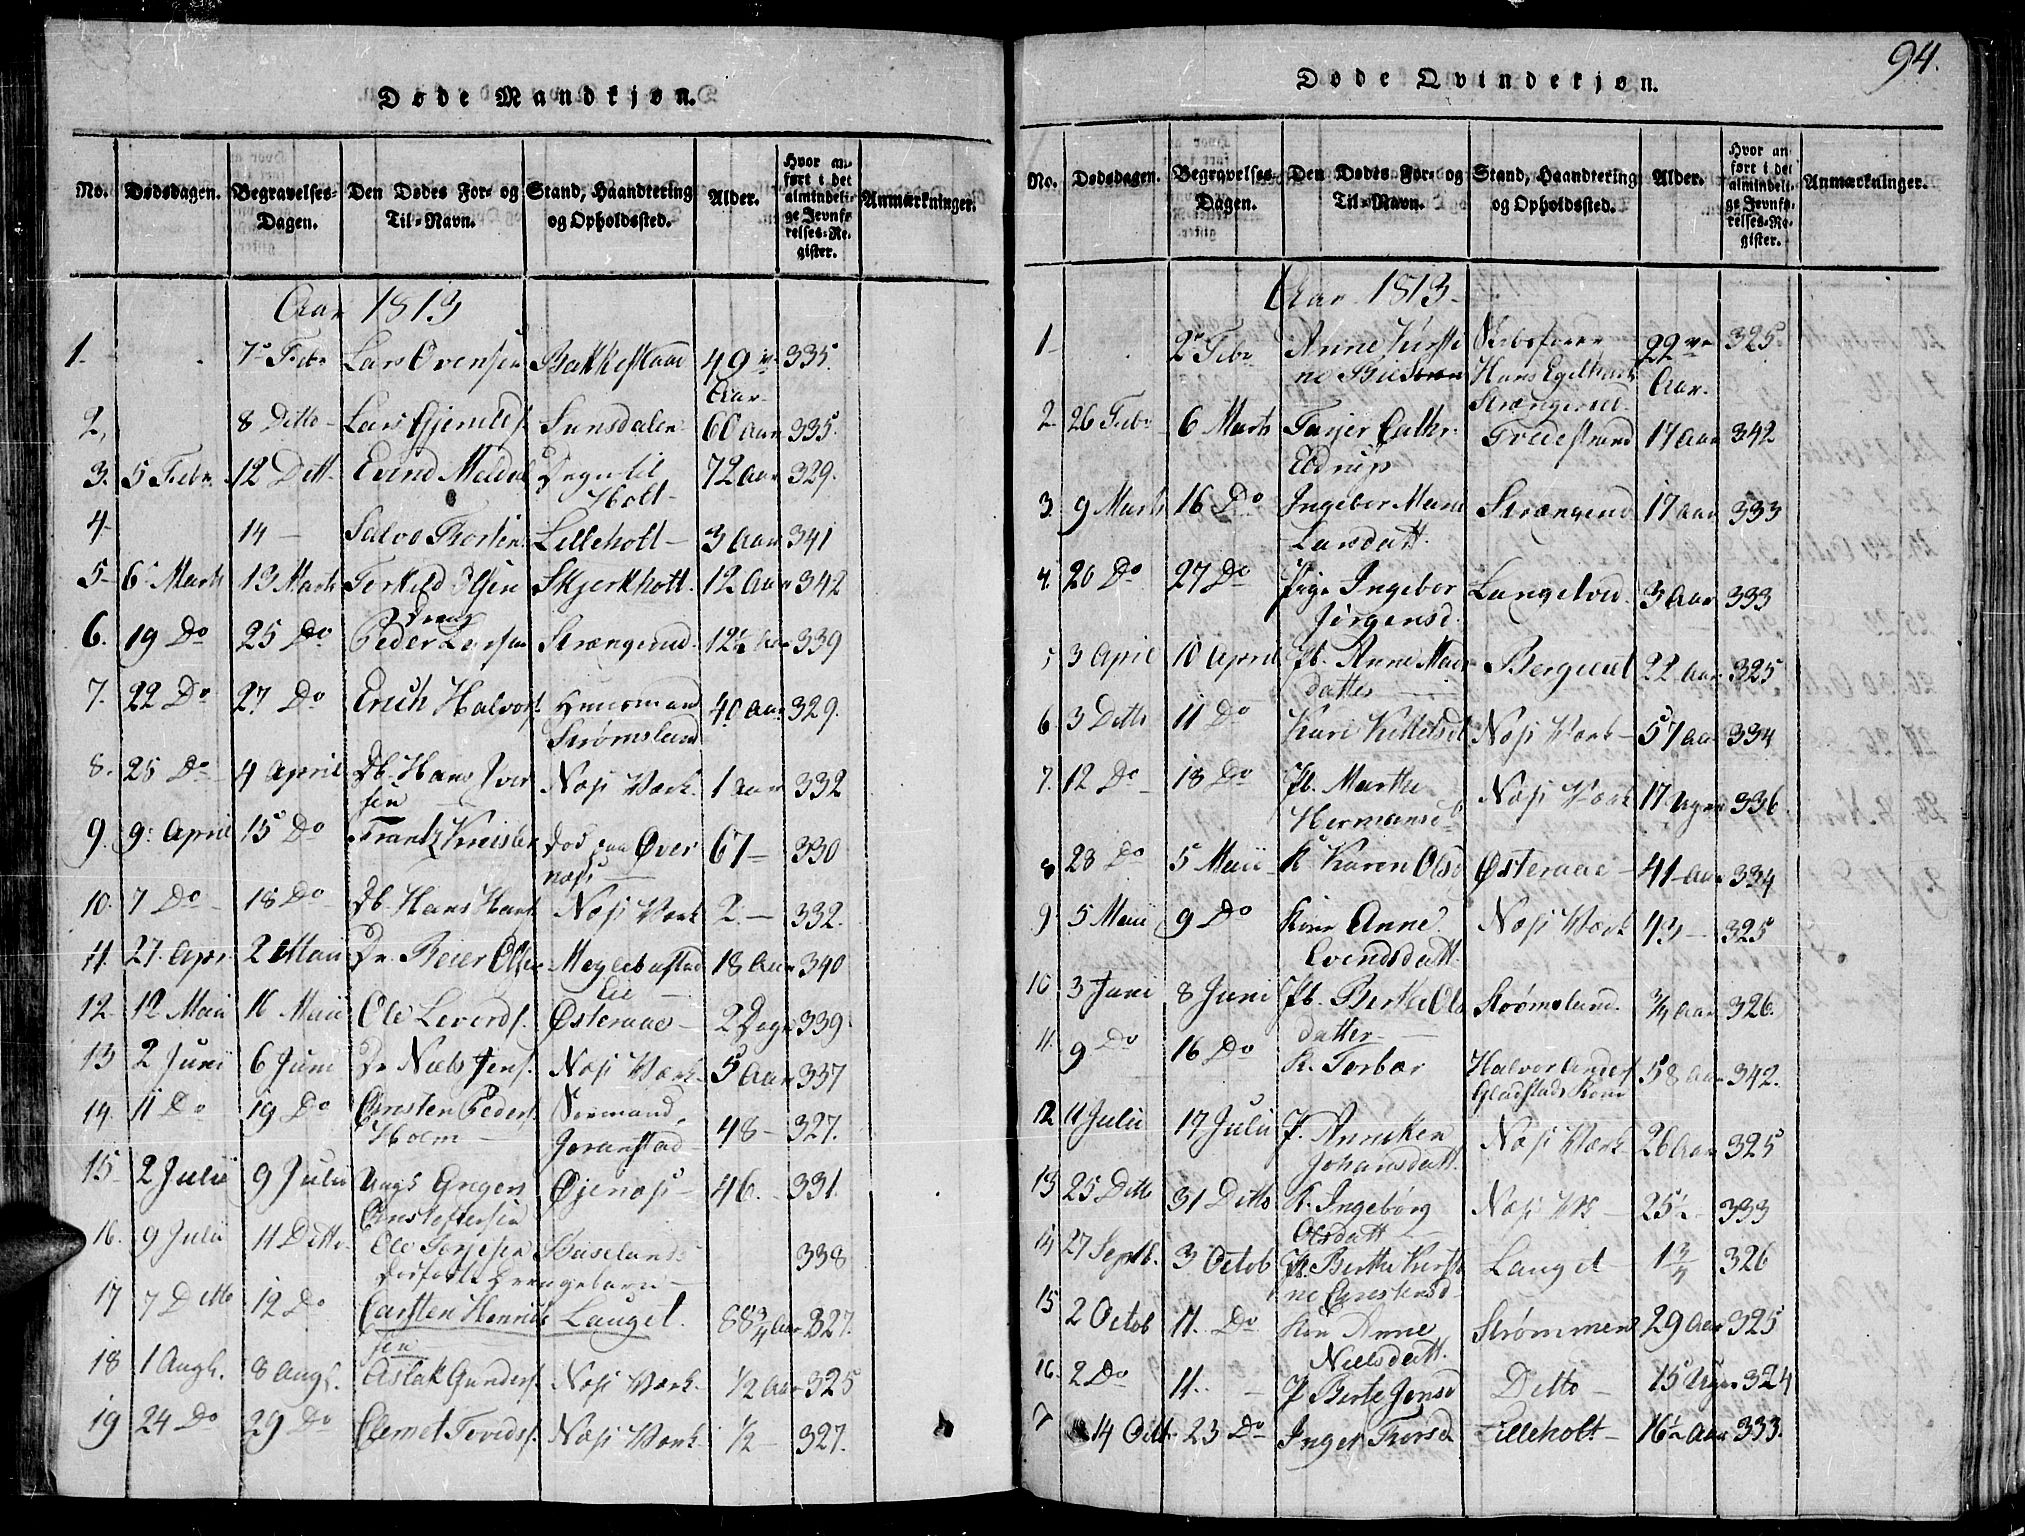 94.
Døde Mandkjøn.
No. Dødsdagen. Begravelses-Dagen. Den Dødes For- og Til-Navn. Stand, Haandtering og Opholdssted. Alder. Hvor anført i det almindelige Jevnførelses-Register. Anmærkninger.
Aar 1813
1. 7de Febr Lars Evensen Bakkestaae 49 Aar 335.
2, 8 Ditto Lars Gjerulds. Sunsdalen 60 Aar 335.
3. 5 Febr. 12 Ditt. Degn til Holt 72 Aar 329.
4 14 Salve Thorsten Lilleholt 3 Aar 341
5 6 Marts 13 Marts Terkild Olsen Skjerkholt. 12 Aar 342
6. 19 Do 25 Do Dreng Peder Larsen Strængerud 12½ Aar 339
7. 22 Do 27 Do Erich Halvors. Huusmand Strømsland 40 Aar 329.
8. 25 Do 4 April Db. Hans Iversen Næss Værk. 1 Aar 332
9. 9 April 15 Do Frantz Kreisler Død paa Øvernæss 67 — 330
10. 7 Do 18 Do Db. Hans Hans. Næss Værk 2 — 332.
11. 27. Apr. 2 Maii Dr. Reier Olsen 18 Aar 340
12. 12 Maii 16 Maii Ole Leverds. Østeraae 2 Dage 339
13 2 Junii 6 Juni Dr Niels Jens. Næss Værk 5 Aar 337
14. 11 Do 19 Do Christen Peders. Holm Sømand, Goranstad 48 — 327.
15 2 Julii 9 Julii Ungk Gregers Christophersen Øjenæss 46. 331.
16. 9 Julii 11 Ditto. Ole Terjesen Dødfødt Drengebarn Huseland 338
17 7 Ditto 12 Do Carsten Henriksen Lauget. 88¾ Aar 327.
18 1 Augs. 8 Augs. Aslak Gunders. Næss Værk. ½ Aar 325
19 24 Do 29 Do Clemet Tovids. Næss Værk. ½ 327.
Døde Qvindekjøn.
No. Dødsdagen. Begravelses-Dagen. Den Dødes For- og Til-Navn. Stand, Haandtering og Opholdssted. Alder. Hvor anført i det almindelige Jevnførelses-Register. Anmærkninger.
Aar 1813
1 2 Febr Anne Kirstine Skibsfører Hans Egelhart Strængerud 22 Aar. 325
2 26 Febr 6 Marts Cathr. Eldrup Tvedestrand 17 Aar 342
3 9 Marts 16 Do Ingebor Marie Larsdatt. Strængerud 17 Aar 333
4 20 Do 27 Do Pige Ingebor Jørgensd. Langelved 3 Aar 333
5 3 April 10 April Pb. Anne Madsdatter Bergeut 22 Aar 325
6. 3 Ditto 11 Do Kari Kittelsd Næss Værk 57 Aar 334
7. 12 Do 18 Do Pb. Marthe Hermansd. Næss Værk 17 Uger 336
8 28 Do 5 Maii K. Karen Olsd Østeraae 41 Aar 334
9 5 Maii 9 Do Kone Anne Evendsdatt. Næss Værk 43 325
10 3 Juni 8 Juni Pb. Berthe Olsdatter Strømsland. ¾ Aar 326.
11. 9 Do 16 Do K. Torbor Halvor Anders Gladstads Kone 58 Aar 342.
12 11 Julii 17 Julii P. Anneken Johansdatt. Næss Værk 26 Aar 325
13 25 Ditto 31 Ditto K. Ingebørg Olsdatt Næss Vk 25½ 333
14 27 Septb. 3 Octob Pb. Berthe Kirstine Christensd Lauget 1¾ 326
15 2 Octob 11. Do Kon Anne Nielsdatt. Strømmen 29 Aar 325
16. 2 Do 11. P Berte Jensd Ditto 15 Uger 324
7 14 Octb 23 Do Inger Thorsd. Lilleholt 16½ Aar 333.